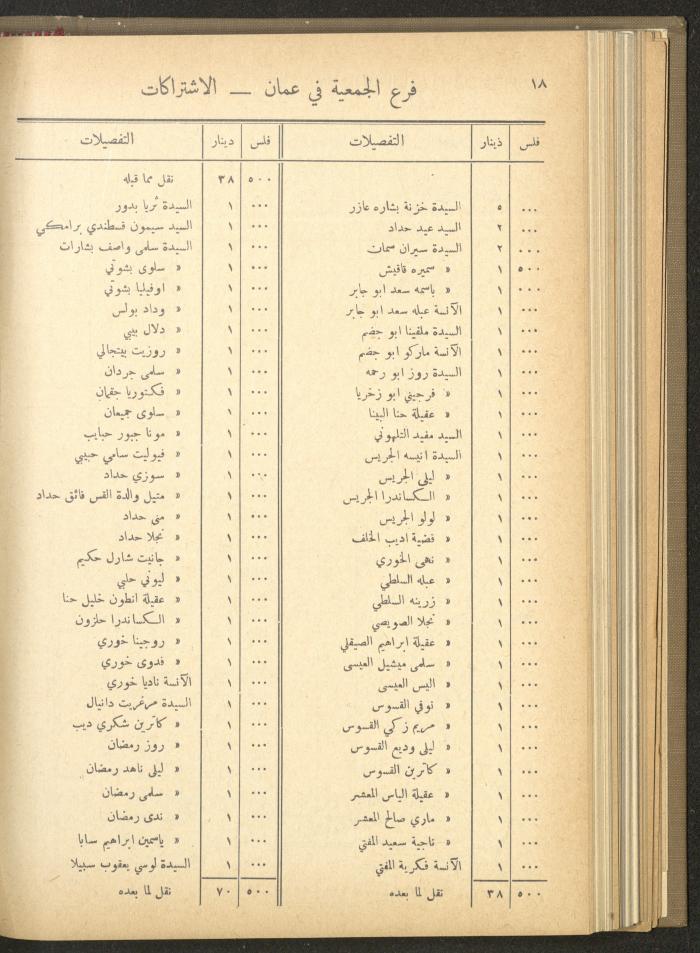 ١٨
فرع الجمعية في عمان — الاشتراكات
فلس دينار التفصيلات
٠٠٠ ٥ السيدة خزنة بشاره عازر
٠٠٠ ٢ السيد عيد حداد
٠٠٠ ٢ السيدة سيران سمان
٥٠٠ ١ « سميره قاقيش
٠٠٠ ١ « باسمه سعد ابو جابر
٠٠٠ ١ الآنسة عبله سعد ابو جابر
٠٠٠ ١ السيدة ملفينا ابو جضم
٠٠٠ ١ الآنسة ماركو ابو جضم
٠٠٠ ١ السيدة روز ابو رحمه
٠٠٠ ١ « فرجيني ابو زخريا
٠٠٠ ١ « عقيلة حنا البينا
٠٠٠ ١ السيد مفيد التلهوني
٠٠٠ ١ السيدة انيسه الجريس
٠٠٠ ١ « ليلى الجريس
٠٠٠ ١ « الكساندرا الجريس
٠٠٠ ١ « لولو الجريس
٠٠٠ ١ « فضية اديب الخلف
٠٠٠ ١ « نهى الخوري
٠٠٠ ١ « عبله السلطي
٠٠٠ ١ « زرينه السلطي
٠٠٠ ١ « نجلا الصويصي
٠٠٠ ١ « عقيلة ابراهيم الصيقلي
٠٠٠ ١ « سلمى ميشيل العيسى
٠٠٠ ١ « اليس العيسى
٠٠٠ ١ « نوفي القسوس
٠٠٠ ١ « مريم زكي القسوس
٠٠٠ ١ « ليلى وديع القسوس
٠٠٠ ١ « كاترين القسوس
٠٠٠ ١ « عقيلة الياس المعشر
٠٠٠ ١ « ماري صالح المعشر
٠٠٠ ١ « ناجية سعيد المفتي
٠٠٠ ١ الآنسة فكرية المفتي
٥٠٠ ٣٨ نقل لما بعده
فلس دينار التفصيلات
٥٠٠ ٣٨ نقل مما قبله
٠٠٠ ١ السيدة ثريا بدور
٠٠٠ ١ السيد سيمون قسطندي برامكي
٠٠٠ ١ السيدة سلمى واصف بشارات
٠٠٠ ١ « سلوى بشوتي
٠٠٠ ١ « اوفيليا بشوتي
٠٠٠ ١ « وداد بولس
٠٠٠ ١ « دلال بيبي
٠٠٠ ١ « روزيت بيتجالي
٠٠٠ ١ « سلمى جردان
٠٠٠ ١ « فكتوريا جقمان
٠٠٠ ١ « سلوى جميعان
٠٠٠ ١ « مونا جبور حبايب
٠٠٠ ١ « فيوليت سامي حبيبي
٠٠٠ ١ « سوزي حداد
٠٠٠ ١ « متيل والدة القس فائق حداد
٠٠٠ ١ « منى حداد
٠٠٠ ١ « نجلا حداد
٠٠٠ ١ « جانيت شارل حكيم
٠٠٠ ١ « ليوني حلبي
٠٠٠ ١ « عقيلة انطون خليل حنا
٠٠٠ ١ « الكساندرا حلزون
٠٠٠ ١ « روجينا خوري
٠٠٠ ١ « فدوى خوري
٠٠٠ ١ الآنسة ناديا خوري
٠٠٠ ١ السيدة مرغريت دانيال
٠٠٠ ١ « كاترين شكري ديب
٠٠٠ ١ « روز رمضان
٠٠٠ ١ « ليلى ناهد رمضان
٠٠٠ ١ « سلمى رمضان
٠٠٠ ١ « ندى رمضان
٠٠٠ ١ « ياسمين ابراهيم سابا
٠٠٠ ١ السيدة لوسي يعقوب سبيلا
٥٠٠ ٧٠ نقل لما بعده